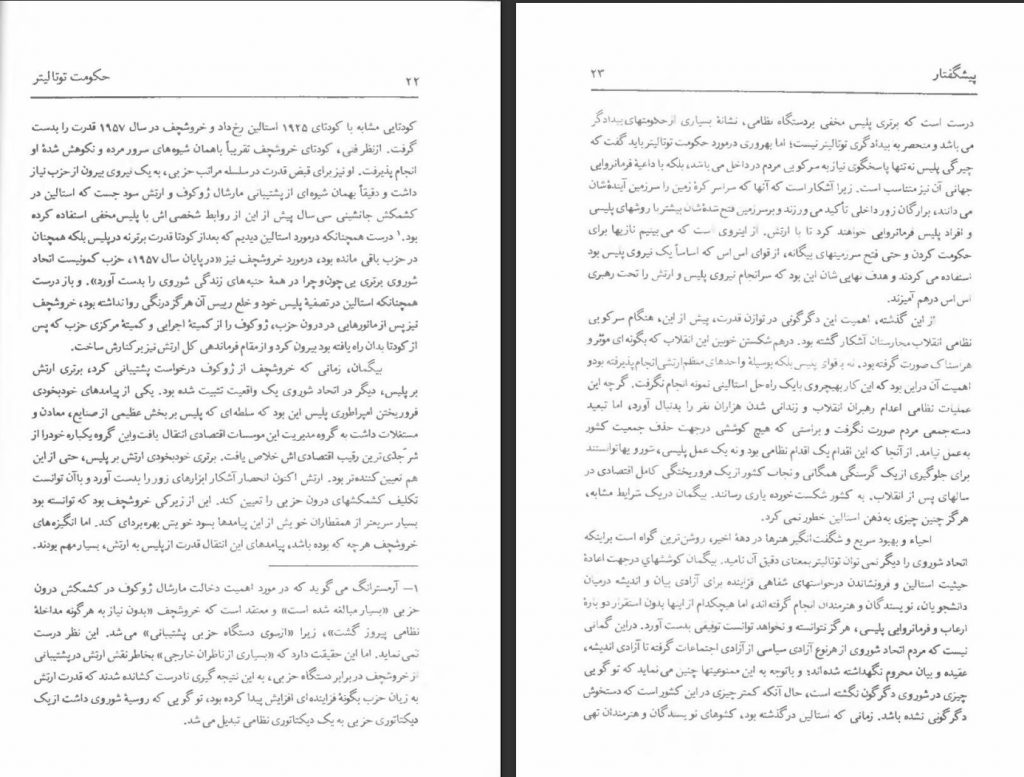 ۲۲
حکومت توتالیتر
کودتایی مشابه با کودتای ۱۹۲۵ استالین رخ‌داد و خروشچف در سال ۱۹۵۷ قدرت را بدست
گرفت. ازنظر فنی، کودتای خروشچف تقریباً باهمان شیوه‌های سرور مرده و نکوهش شدهٔ او
انجام پذیرفت. او نیز برای قبض قدرت در سلسله مراتب حزبی، به یک نیروی بیرون از حزب نیاز
داشت و دقیقاً بهمان شیوه‌ای از پشتیبانی مارشال ژوکوف و ارتش سود جست که استالین در
کشمکش جانشینی سی‌سال پیش از این از روابط شخصی‌اش با پلیس‌مخفی استفاده کرده
بود.۱ درست همچنانکه درمورد استالین دیدیم که بعداز کودتا قدرت برتر نه درپلیس بلکه همچنان
در حزب باقی مانده بود، درمورد خروشچف نیز «در پایان سال ۱۹۵۷، حزب کمونیست اتحاد
شوروی برتری بی‌چون‌وچرا در همهٔ جنبه‌های زندگی شوروی را بدست آورد». و باز درست
همچنانکه استالین در تصفیهٔ پلیس خود و خلع رییس آن هرگز درنگی روا نداشته بود، خروشچف
نیز پس از مانورهایی در درون حزب، ژوکوف را از کمیتهٔ اجرایی و کمیتهٔ مرکزی حزب که پس
از کودتا بدان راه یافته بود بیرون کرد و از مقام فرماندهی کل ارتش نیز برکنارش ساخت.
بیگمان، زمانی که خروشچف از ژوکوف درخواست پشتیبانی کرد، برتری ارتش
بر پلیس، دیگر در اتحاد شوروی یک واقعیت تثبیت شده بود. یکی از پیامدهای خودبخودی
فروریختن امپراطوری پلیس این بود که سلطه‌ای که پلیس بر بخش عظیمی از صنایع، معادن و
مستغلات داشت به گروه مدیریت این موسسات اقتصادی انتقال یافت‌واین گروه یکباره خودرا از
شر جدی‌ترین رقیب اقتصادی‌اش خلاص یافت. برتری خودبخودی ارتش بر پلیس، حتی از این
هم تعیین کننده‌تر بود. ارتش اکنون انحصار آشکار ابزارهای زور را بدست آورد و باآن توانست
تکلیف کشمکشهای درون حزبی را تعیین کند. این از زیرکی خروشچف بود که توانسته بود
بسیار سریعتر از همقطاران خویش از این پیامدها بسود خویش بهره‌برداری کند. اما انگیزه‌های
خروشچف هر چه که بوده باشد، پیامدهای این انتقال قدرت ازپلیس به ارتش، بسیار مهم بودند.
۱— آرمسترانگ می‌گوید که در مورد اهمیت دخالت مارشال ژوکوف در کشمکش درون
حزبی «بسیار مبالغه شده است» و معتقد است که خروشچف «بدون نیاز به هرگونه مداخلهٔ
نظامی پیروز گشت»، زیرا «ازسوی دستگاه حزبی پشتیبانی» می‌شد. این نظر درست
نمی‌نماید. اما این حقیقت دارد که «بسیاری از ناظران خارجی» بخاطر نقش ارتش در پشتیبانی
از خروشچف در برابر دستگاه حزبی، به این نتیجه گیری نادرست کشانده شدند که قدرت ارتش
به زیان حزب بگونهٔ فزاینده‌ای افزایش پیدا کرده بود، تو گویی که روسیهٔ شوروی داشت ازیک
دیکتاتوری حزبی به یک دیکتاتوری نظامی تبدیل می‌شد.
پیشگفتار
۲۳
درست است که برتری پلیس مخفی بردستگاه نظامی، نشانهٔ بسیاری از حکومتهای بیدادگر
می‌باشد و منحصر به بیدادگری توتالیتر نیست؛ اما بهروری درمورد حکومت توتالیتر باید گفت که
چیرگی پلیس نه‌تنها پاسخگوی نیاز به سرکوبی مردم در داخل می‌باشد، بلکه با داعیهٔ فرمانروایی
جهانی آن نیز متناسب است. زیرا آشکار است که آنها که سراسر کرهٔ زمین را سرزمین آیندهٔشان
می‌دانند، بر ارگان زور داخلی تأکید می‌ورزند و بر سرزمین فتح شدهٔشان بیشتر با روشهای پلیسی
و افراد پلیس فرمانروایی خواهند کرد تا با ارتش. از اینروی است که می‌بینیم نازیها برای
حکومت کردن و حتی فتح سرزمینهای بیگانه، از قوای اس اس که اساساً یک نیروی پلیس بود
استفاده می‌کردند و هدف نهایی شان این بود که سرانجام نیروی پلیس و ارتش را تحت رهبری
اس اس درهم آمیزند.
از این گذشته، اهمیت این دگرگونی در توازن قدرت، پیش از این، هنگام سرکوبی
نظامی انقلاب مجارستان آشکار گشته بود. درهم شکستن خونین این انقلاب که بگونه‌ای مؤثر و
هراسناک صورت گرفته بود، نه با قوای پلیس بلکه بوسیلهٔ واحدهای منظم ارتش انجام پذیرفته بود و
اهمیت آن در این بود که این کار بهیچروی با یک راه حل استالینی نمونه انجام نگرفت. گرچه این
عملیات نظامی اعدام رهبران انقلاب و زندانی شدن هزاران نفر را بدنبال آورد، اما تبعید
دسته‌جمعی مردم صورت نگرفت و براستی که هیچ کوششی درجهت حذف جمعیت کشور
به‌عمل نیامد. از آنجا که این اقدام یک اقدام نظامی بود و نه یک عمل پلیسی، شورویها توانستند
برای جلوگیری از یک گرسنگی همگانی و نجات کشور از یک فروریختگی کامل اقتصادی در
سالهای پس از انقلاب، به کشور شکست‌خورده یاری رسانند. بیگمان دریک شرایط مشابه،
هرگز چنین چیزی به‌ذهن استالین خطور نمی‌کرد.
احیاء و بهبود سریع و شگفت‌انگیز هنرها در دههٔ اخیر، روشن‌ترین گواه است براینکه
اتحاد شوروی را دیگر نمی‌توان توتالیتر بمعنای دقیق آن نامید. بیگمان کوششهای درجهت اعادهٔ
حیثیت استالین و فرونشاندن درخواستهای شفاهی فزاینده برای آزادی بیان و اندیشه درمیان
دانشجویان، نویسندگان و هنرمندان انجام گرفته‌اند، اما هیچکدام از اینها بدون استقرار دوبارهٔ
ارعاب و فرمانروایی پلیسی، هرگز نتوانسته و نخواهد توانست توفیقی بدست آورد. دراین گمانی
نیست که مردم اتحاد شوروی از هرنوع آزادی سیاسی از آزادی اجتماعات گرفته تا آزادی اندیشه،
عقیده و بیان محروم نگهداشته شده‌اند؛ و باتوجه به این ممنوعیتها چنین می‌نماید که تو گویی
چیزی در شوروی دگرگون نگشته است، حال آنکه کمتر چیزی در این کشور است که دستخوش
دگرگونی نشده باشد. زمانی که استالین درگذشته بود، کشوهای نویسندگان و هنرمندان تهی